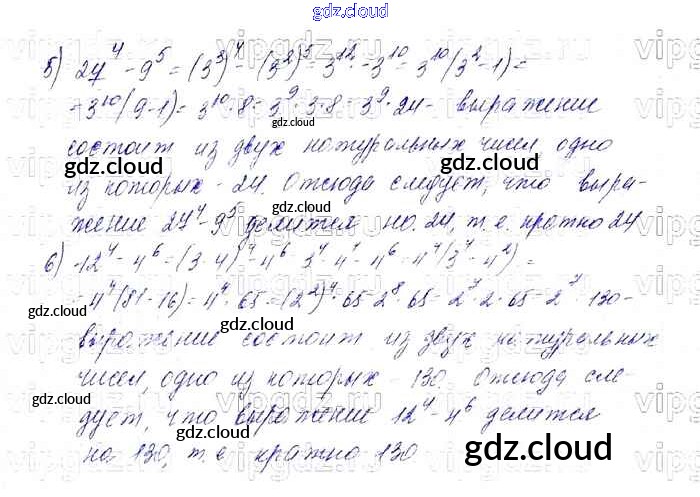 gdz.cloud
5) 27⁴ - 9⁵ = (3³)⁴ - (3²)⁵ = 3¹² - 3¹⁰ = 3¹⁰(3² - 1) =
= 3¹⁰(9-1) = 3¹⁰·8 = 3⁹·3·8 = 3⁹·24 - выражение
состоит из двух натуральных чисел, одно
из которых - 24. Отсюда следует, что выра-
жение 27⁴ - 9⁵ делится на 24, т.е. кратно 24
6) 12⁴ - 4⁶ = (3·4)⁴ - 4⁶ = 3⁴·4⁴ - 4⁶ = 4⁴(3⁴ - 4²) =
= 4⁴(81-16) = 4⁴·65 = (2²)⁴·65 = 2⁸·65 = 2⁷·2·65 = 2⁷·130 -
выражение состоит из двух натуральных
чисел, одно из которых - 130. Отсюда сле-
дует, что выражение 12⁴ - 4⁶ делится
на 130, т.е. кратно 130
gdz.cloud
gdz.cloud
gdz.cloud
gdz.cloud
gdz.cloud
gdz.cloud
gdz.cloud
gdz.cloud
gdz.cloud
gdz.cloud